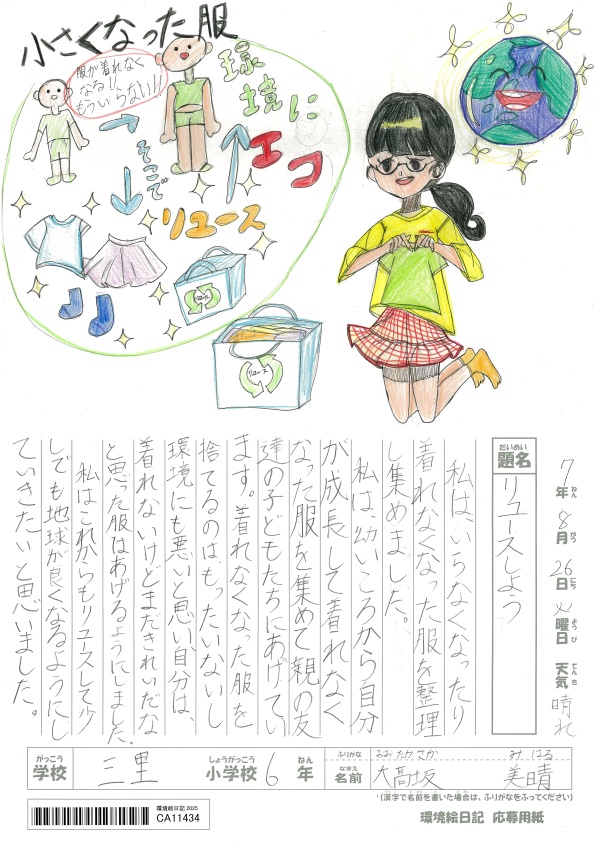 小さくなった服
服が着れなく
なる!!
もういらない!!
そこで
リユース
環境に
エコ
リユース
リユース
7年 8月 26日 火曜日 天気 晴れ
ねん がつ にち ようび てんき
だいめい
題名
リユースしよう
私は、いらなくなったり
着れなくなった服を整理
し集めました。
私は、幼いころから自分
が成長して着れなく
なった服を集めて親の友
達の子どもたちにあげてい
ます。着れなくなった服を
捨てるのは、もったいないし
環境にも悪いと思い、自分は、
着れないけどまだきれいだな
と思った服はあげるようにしました。
私はこれからもリユースして少
しでも地球が良くなるようにし
ていきたいと思いました。
がっこう しょうがっこう ねん ふりがな おおたかさか みはる
学校 三里 小学校 6年 なまえ 名前 大高坂 美晴
・(漢字で名前を書いた場合は、ふりがなをふってください)
環境絵日記 2025
CA11434
環境絵日記 応募用紙